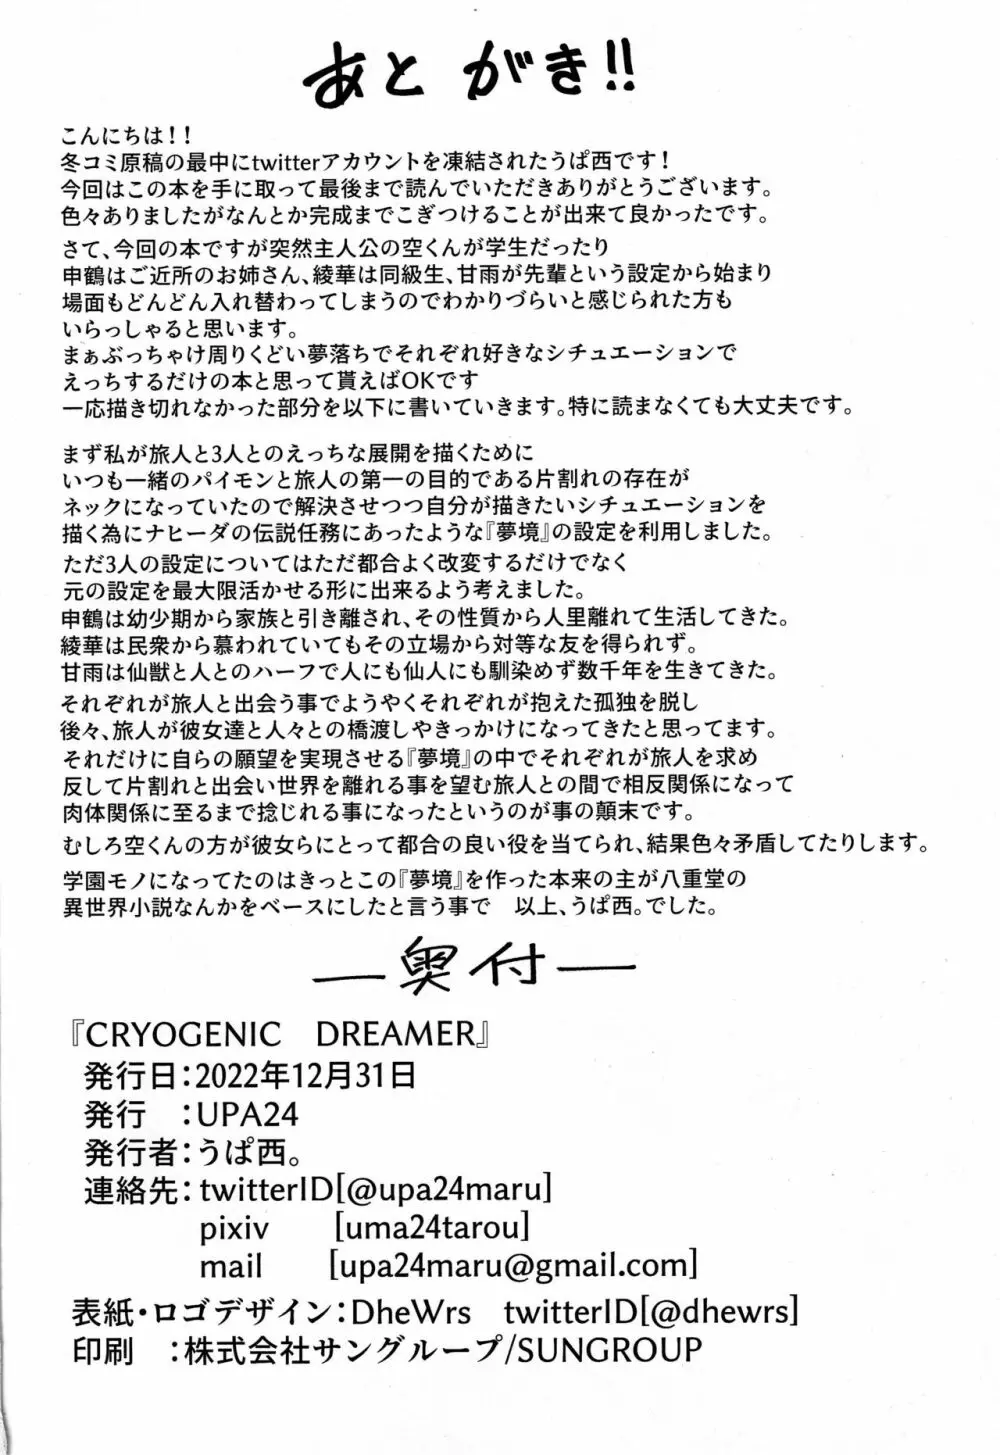 あとがき!!
こんにちは！！
冬コミ原稿の最中にtwitterアカウントを凍結されたうぱ西です！
今回はこの本を手に取って最後まで読んでいただきありがとうございます。
色々ありましたがなんとか完成までこぎつけることが出来て良かったです。
さて、今回の本ですが突然主人公の空くんが学生だったり
申鶴はご近所のお姉さん、綾華は同級生、甘雨が先輩という設定から始まり
場面もどんどん入れ替わってしまうのでわかりづらいと感じられた方も
いらっしゃると思います。
まぁぶっちゃけ周りくどい夢落ちでそれぞれ好きなシチュエーションで
えっちするだけの本と思って貰えばOKです
一応描き切れなかった部分を以下に書いていきます。特に読まなくても大丈夫です。
まず私が旅人と3人とのえっちな展開を描くために
いつも一緒のパイモンと旅人の第一の目的である片割れの存在が
ネックになっていたので解決させつつ自分が描きたいシチュエーションを
描く為にナヒーダの伝説任務にあったような『夢境』の設定を利用しました。
ただ3人の設定についてはただ都合よく改変するだけでなく
元の設定を最大限活かせる形に出来るよう考えました。
申鶴は幼少期から家族と引き離され、その性質から人里離れて生活してきた。
綾華は民衆から慕われていてもその立場から対等な友を得られず。
甘雨は仙獣と人とのハーフで人にも仙人にも馴染めず数千年を生きてきた。
それぞれが旅人と出会う事でようやくそれぞれが抱えた孤独を脱し
後々、旅人が彼女達と人々との橋渡しやきっかけになってきたと思ってます。
それだけに自らの願望を実現させる『夢境』の中でそれぞれが旅人を求め
反して片割れと出会い世界を離れる事を望む旅人との間で相反関係になって
肉体関係に至るまで捻じれる事になったというのが事の顛末です。
むしろ空くんの方が彼女らにとって都合の良い役を当てられ、結果色々矛盾してたりします。
学園モノになってたのはきっとこの『夢境』を作った本来の主が八重堂の
異世界小説なんかをベースにしたと言う事で　以上、うぱ西。でした。
―奥付―
『CRYOGENIC　DREAMER』
発行日：2022年12月31日
発行　：UPA24
発行者：うぱ西。
連絡先：twitterID[@upa24maru]
pixiv　[uma24tarou]
mail　[upa24maru@gmail.com]
表紙・ロゴデザイン：DheWrs　twitterID[@dhewrs]
印刷　：株式会社サングループ/SUNGROUP